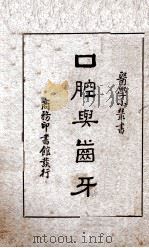 醫學小叢書
口腔與齒牙
商務印書館發行